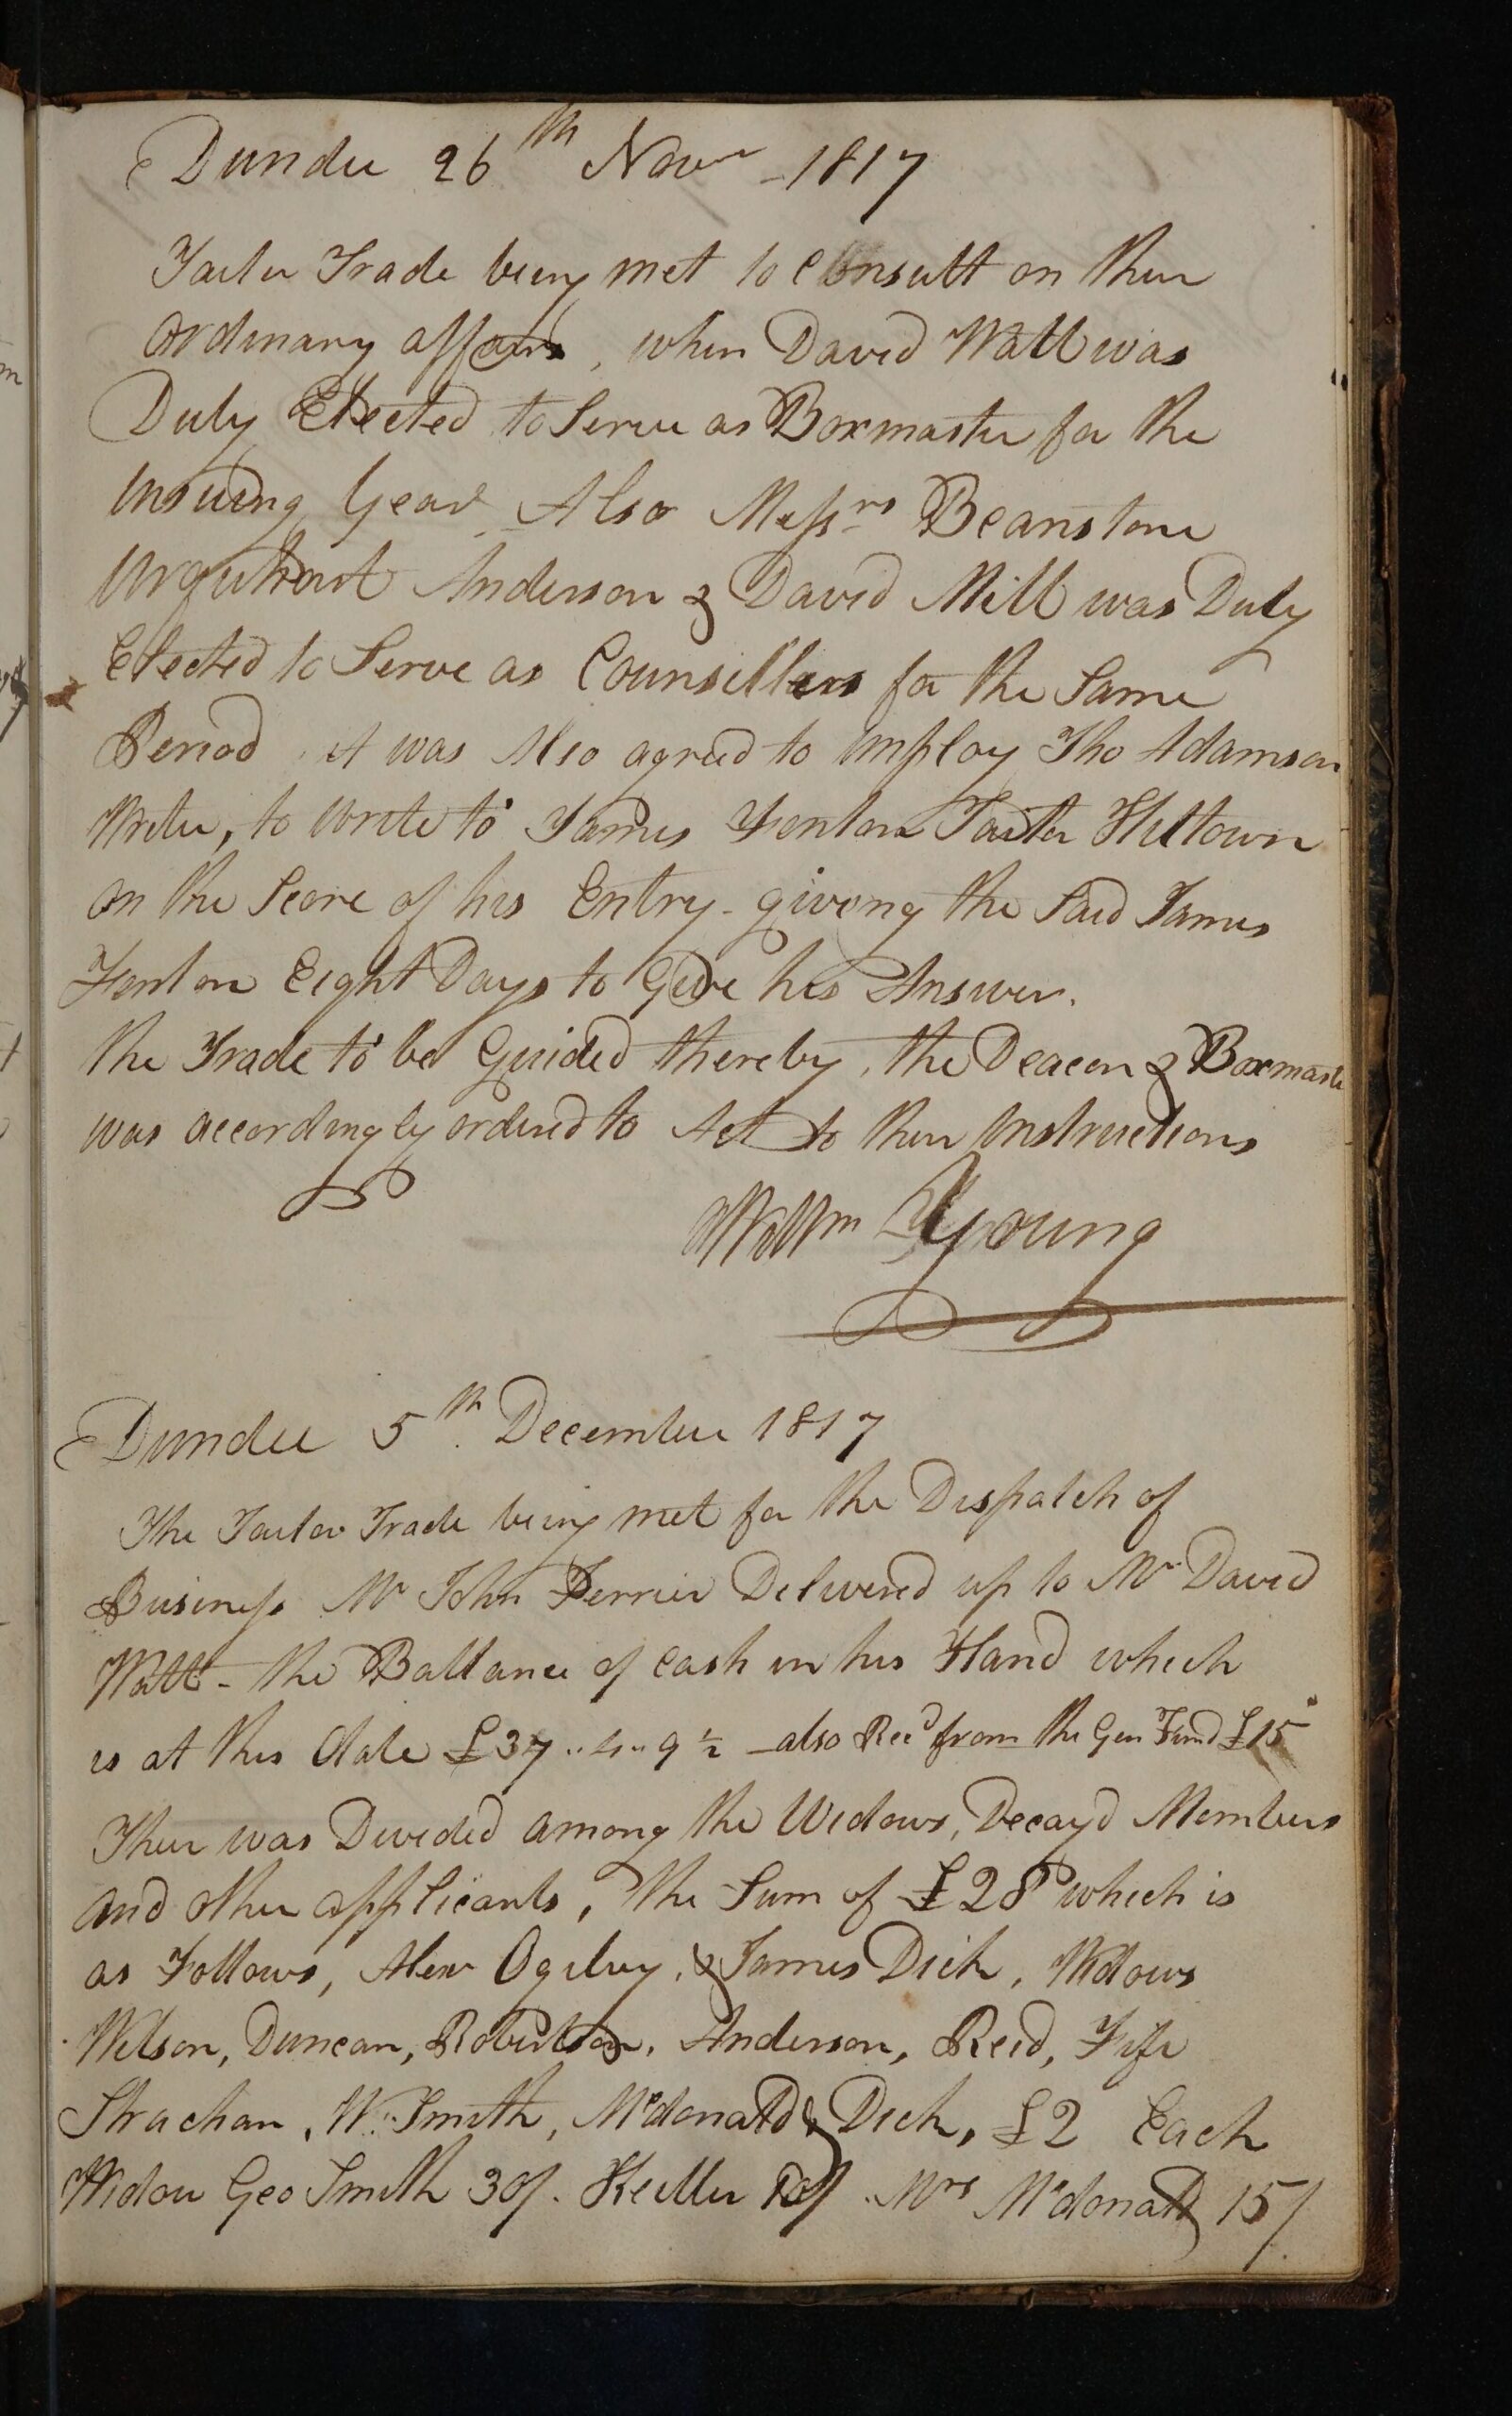 Dundee 26th Novr 1817
Tailor Trade being met to Consult on their
Ordinary affairs, when David Watt was
Duly Elected to Serve as Boxmaster for the
Insuing Year Also Messrs Beanstone
Urquhart Anderson & David Mill was Duly
Elected to Serve as Counsillers for the Same
Period, it was Also agreed to Imploy Tho Adamson
Writer, to write to James Fenton Tailor Hiltown
on the Score of his Entry - giving the Said James
Fenton Eight Days to Give his Answer.
the Trade to be Guided thereby, the Deacon & Boxmaster
was accordingly ordered to Act to their Instructions
Willm Young
Dundee 5th December 1817
The Tailor Trade being met for the Dispatch of
Business Mr John Ferrier Delivered up to Mr David
Watt - the Ballance of Cash in his Hand which
is at this date £37 .. 4 .. 9 ½ - also Recd from the Gen Fund £15
Their was Devided among the Widows, Decayd Members
and other applicants, the Sum of £28 which is
as Follows, Alexr Ogilvy, & James Dick, Widows
Wilson, Duncan, Robertson, Anderson, Reid, Fife
Strachan, W. Smith, Mcdonald & Dick, £2 Each
Widow Geo Smith 30/. Keiller 10/. Mrs Mcdonald 15/